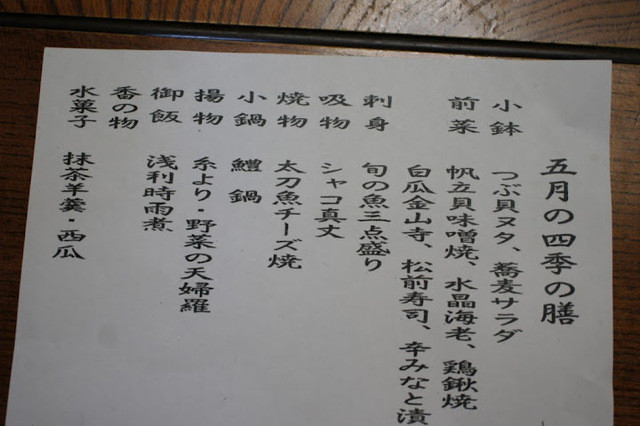 五月の四季の膳
小鉢 つぶ貝ヌタ、蕎麦サラダ
前菜 帆立貝味噌焼、水晶海老、鶏鍬焼
白瓜金山寺、松前寿司、辛みなと漬
刺身 旬の魚三点盛り
吸物 シャコ真丈
焼物 太刀魚チーズ焼
小鍋 鱧鍋
揚物 糸より・野菜の天婦羅
御飯 浅利時雨煮
香の物
水菓子 抹茶羊羹・西瓜